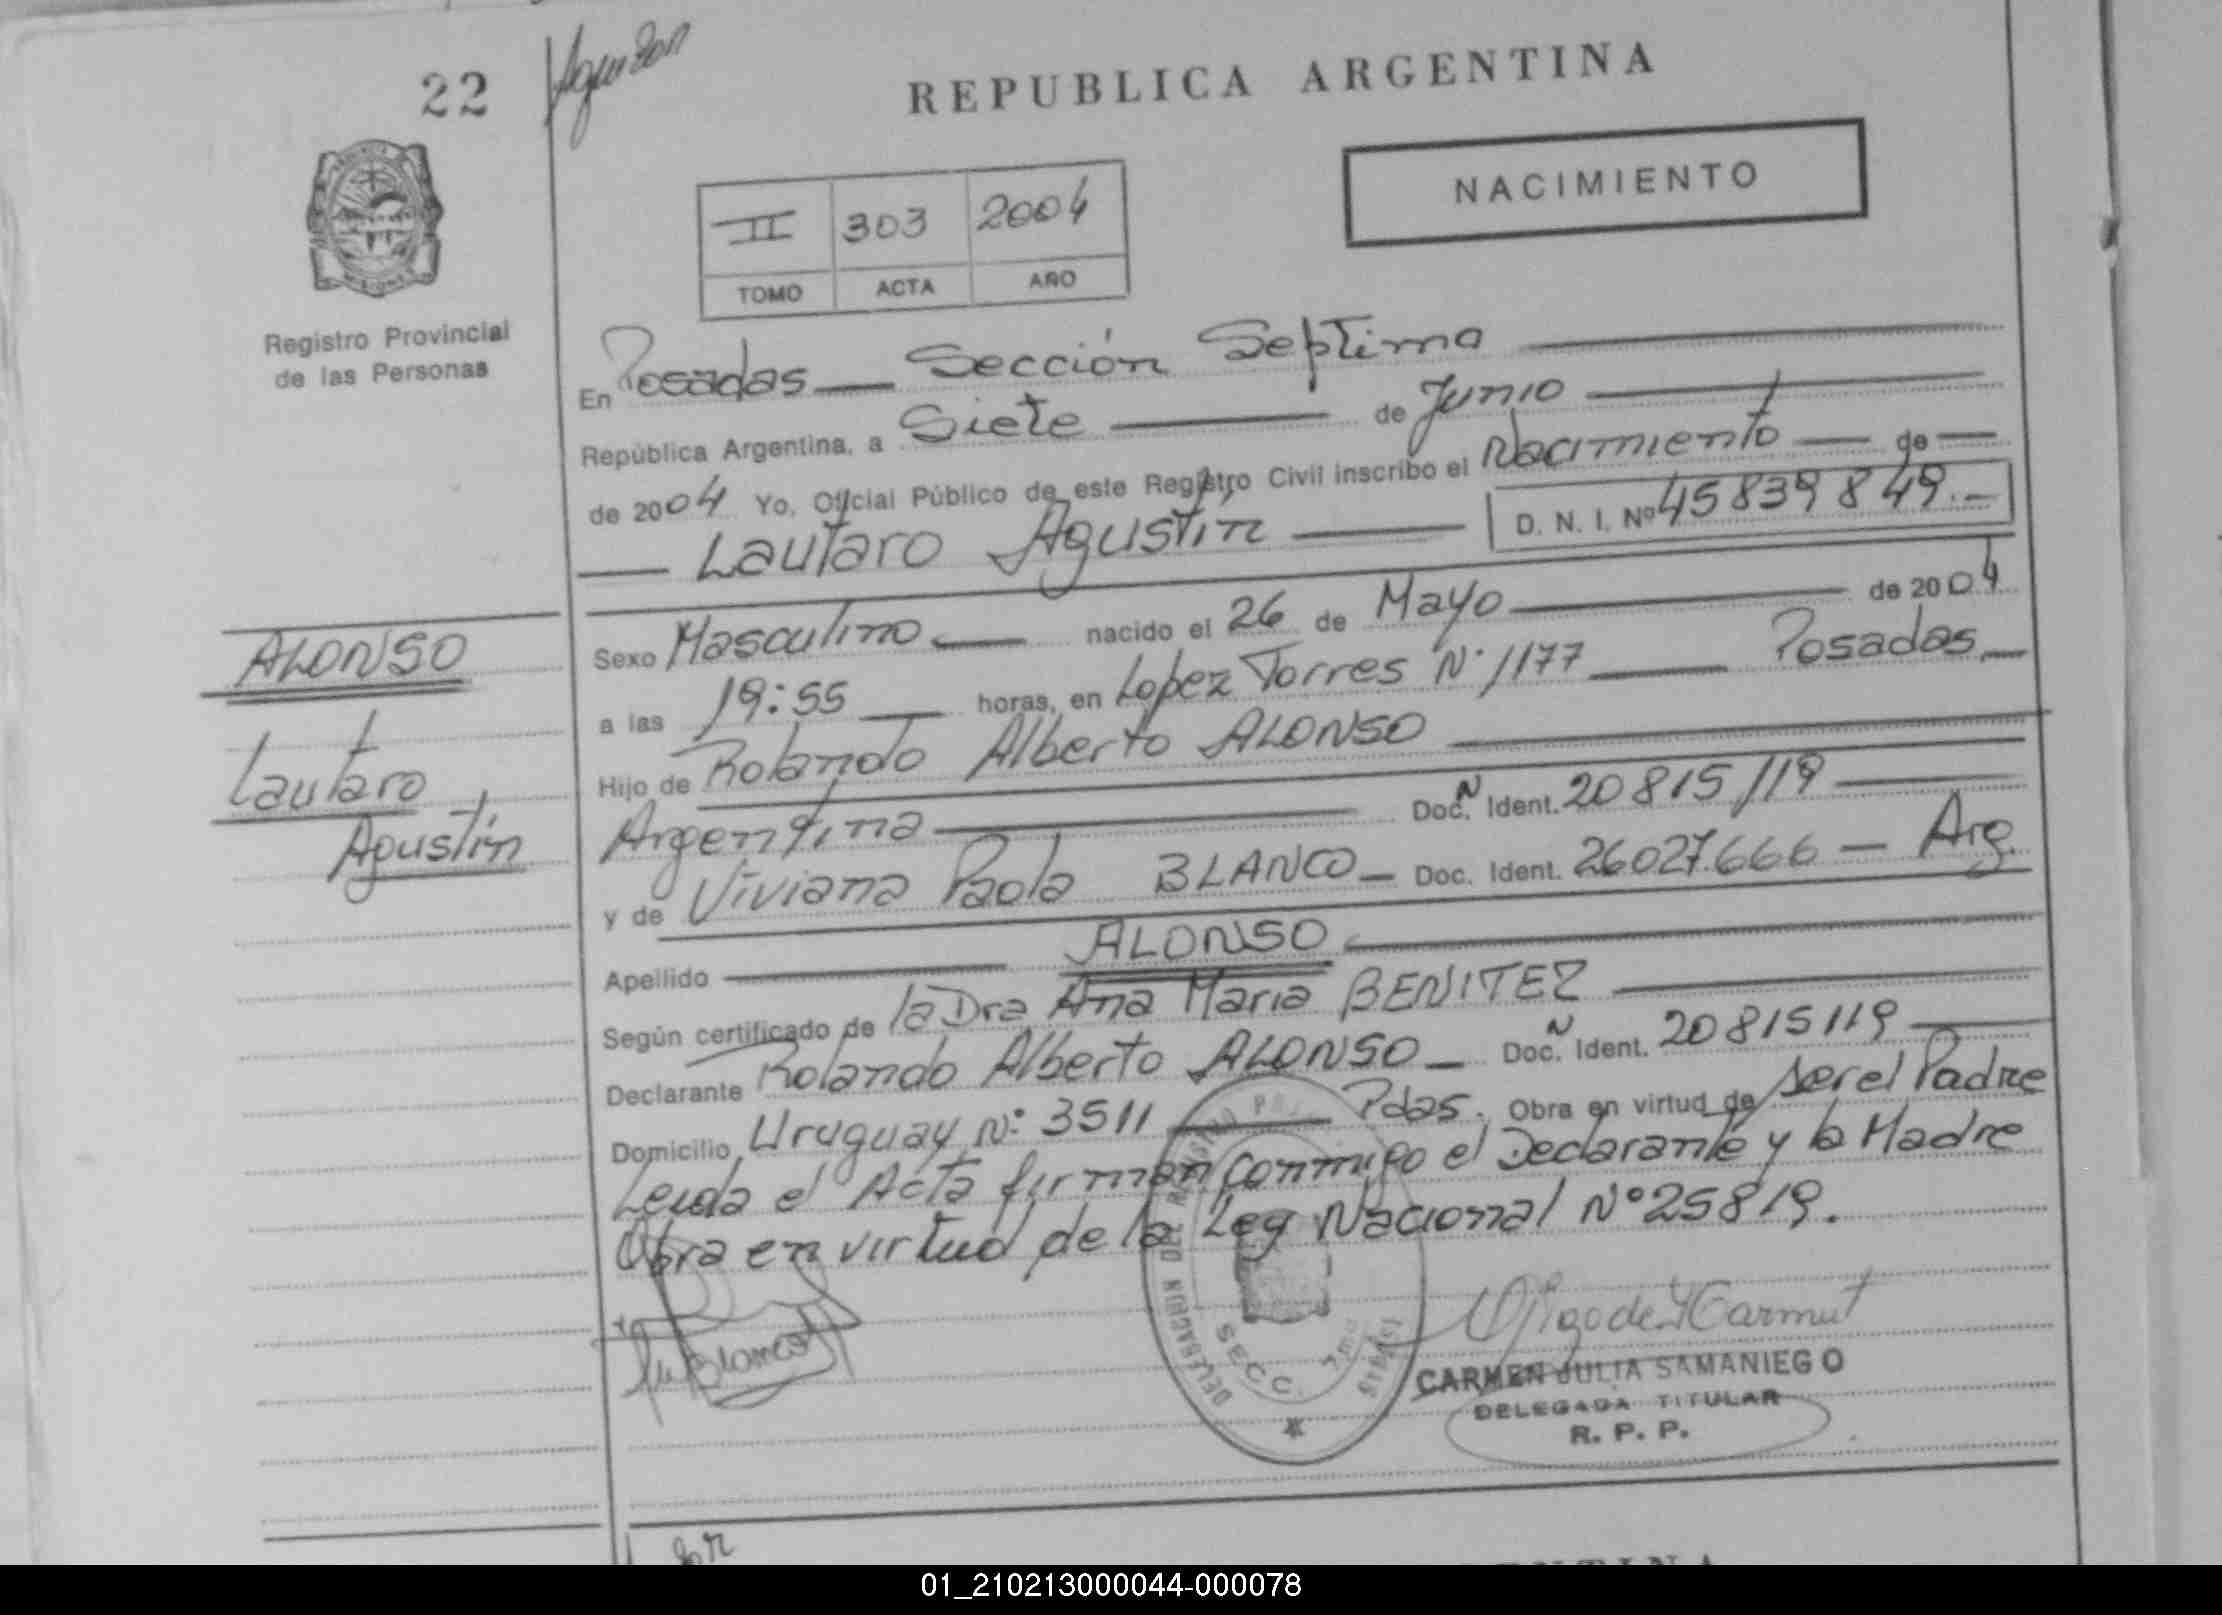 22
REPUBLICA ARGENTINA
NACIMIENTO
II 303 2004
TOMO ACTA AÑO
Registro Provincial
de las Personas
En Posadas — Sección Septima
República Argentina, a Siete de Junio
de 2004 Yo, Oficial Público de este Registro Civil inscribo el Nacimiento — de —
— Lautaro Agustín — D. N. I. Nº 45839849.-
ALONSO
Lautaro
Agustín
Sexo Masculino — nacido el 26 de Mayo — de 2004
a las 19:55 — horas, en Lopez Torres Nº 1177 — Posadas —
Hijo de Rolando Alberto ALONSO
Argentina — Doc. N Ident. 20815119 —
y de Viviana Paola BLANCO — Doc. Ident. 26027.666 — Arg.
Apellido — ALONSO —
Según certificado de la Dra Ana Maria BENITEZ —
Declarante Rolando Alberto ALONSO — Doc. N Ident. 20815119 —
Domicilio Uruguay Nº 3511 — Pdas. Obra en virtud de ser el Padre
Leida el Acta firman conmigo el Declarante y la Madre
Obra en virtud de la Ley Nacional Nº 25819.
Blanco
DELEGACION DEL REGISTRO
SECC. 7ma
CARMEN JULIA SAMANIEGO
DELEGADA TITULAR
R. P. P.
01_210213000044-000078